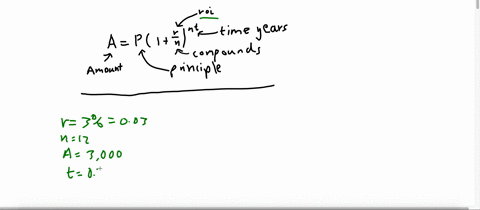 roi
A = P(1 + r/n)^nt time years
compounds
Amount principle
r = 3% = 0.03
n = 12
A = 3,000
t = 0.